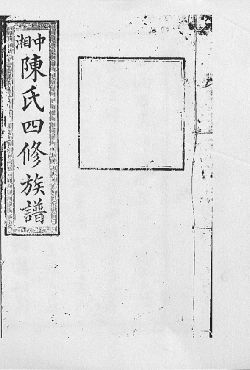 中湘
陳氏四修族譜